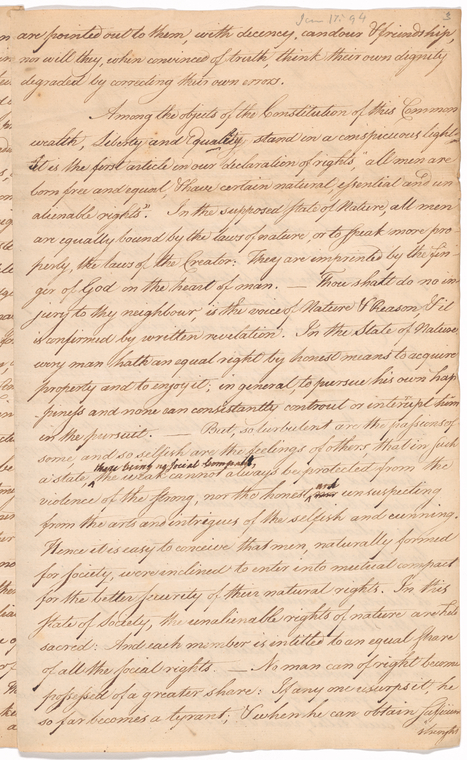 Jan 17. 94
3
are pointed out to them, with decency, candour & friendship,
nor will they, when convinced of truth think their own dignity
degraded by correcting their own errors.
Among the objects of the Constitution of this Common
wealth, Liberty and Equality stand in a conspicuous light
It is the first article in our declaration of rights, "all men are
born free and equal, & have certain natural, essential and un
alienable rights". In the supposed State of Nature, all men
are equally bound by the laws of nature, or to speak more pro-
perly, the laws of the Creator: They are imprinted by the fin-
ger of God in the heart of man. — Thou shalt do no in-
jury to thy neighbour, is the voice of Nature & Reason, & it
is confirmed by written revelation. In the State of Nature
every man hath an equal right by honest means to acquire
property and to enjoy it; in general, to pursue his own hap
piness and none can consistantly controul or interupt him
in the pursuit. — But, so turbulent are the passions of
some, and so selfish are the feelings of others, that in such
there being no social Compact,
a state, the weak cannot always be protected from the
violence of the strong, nor the honest and unsuspecting
from the arts and intrigues of the selfish and cunning.
Hence it is easy to conceive that men, naturally formed
for Society, were inclined to enter into mutual compact
for the better security of their natural rights. In this
State of Society, the unalienable rights of nature are held
sacred: And each member is intitled to an equal share
of all the social rights. — No man can of right become
possessed of a greater share: If any one usurps it, he
so far becomes a tyrant; & when he can obtain
strength